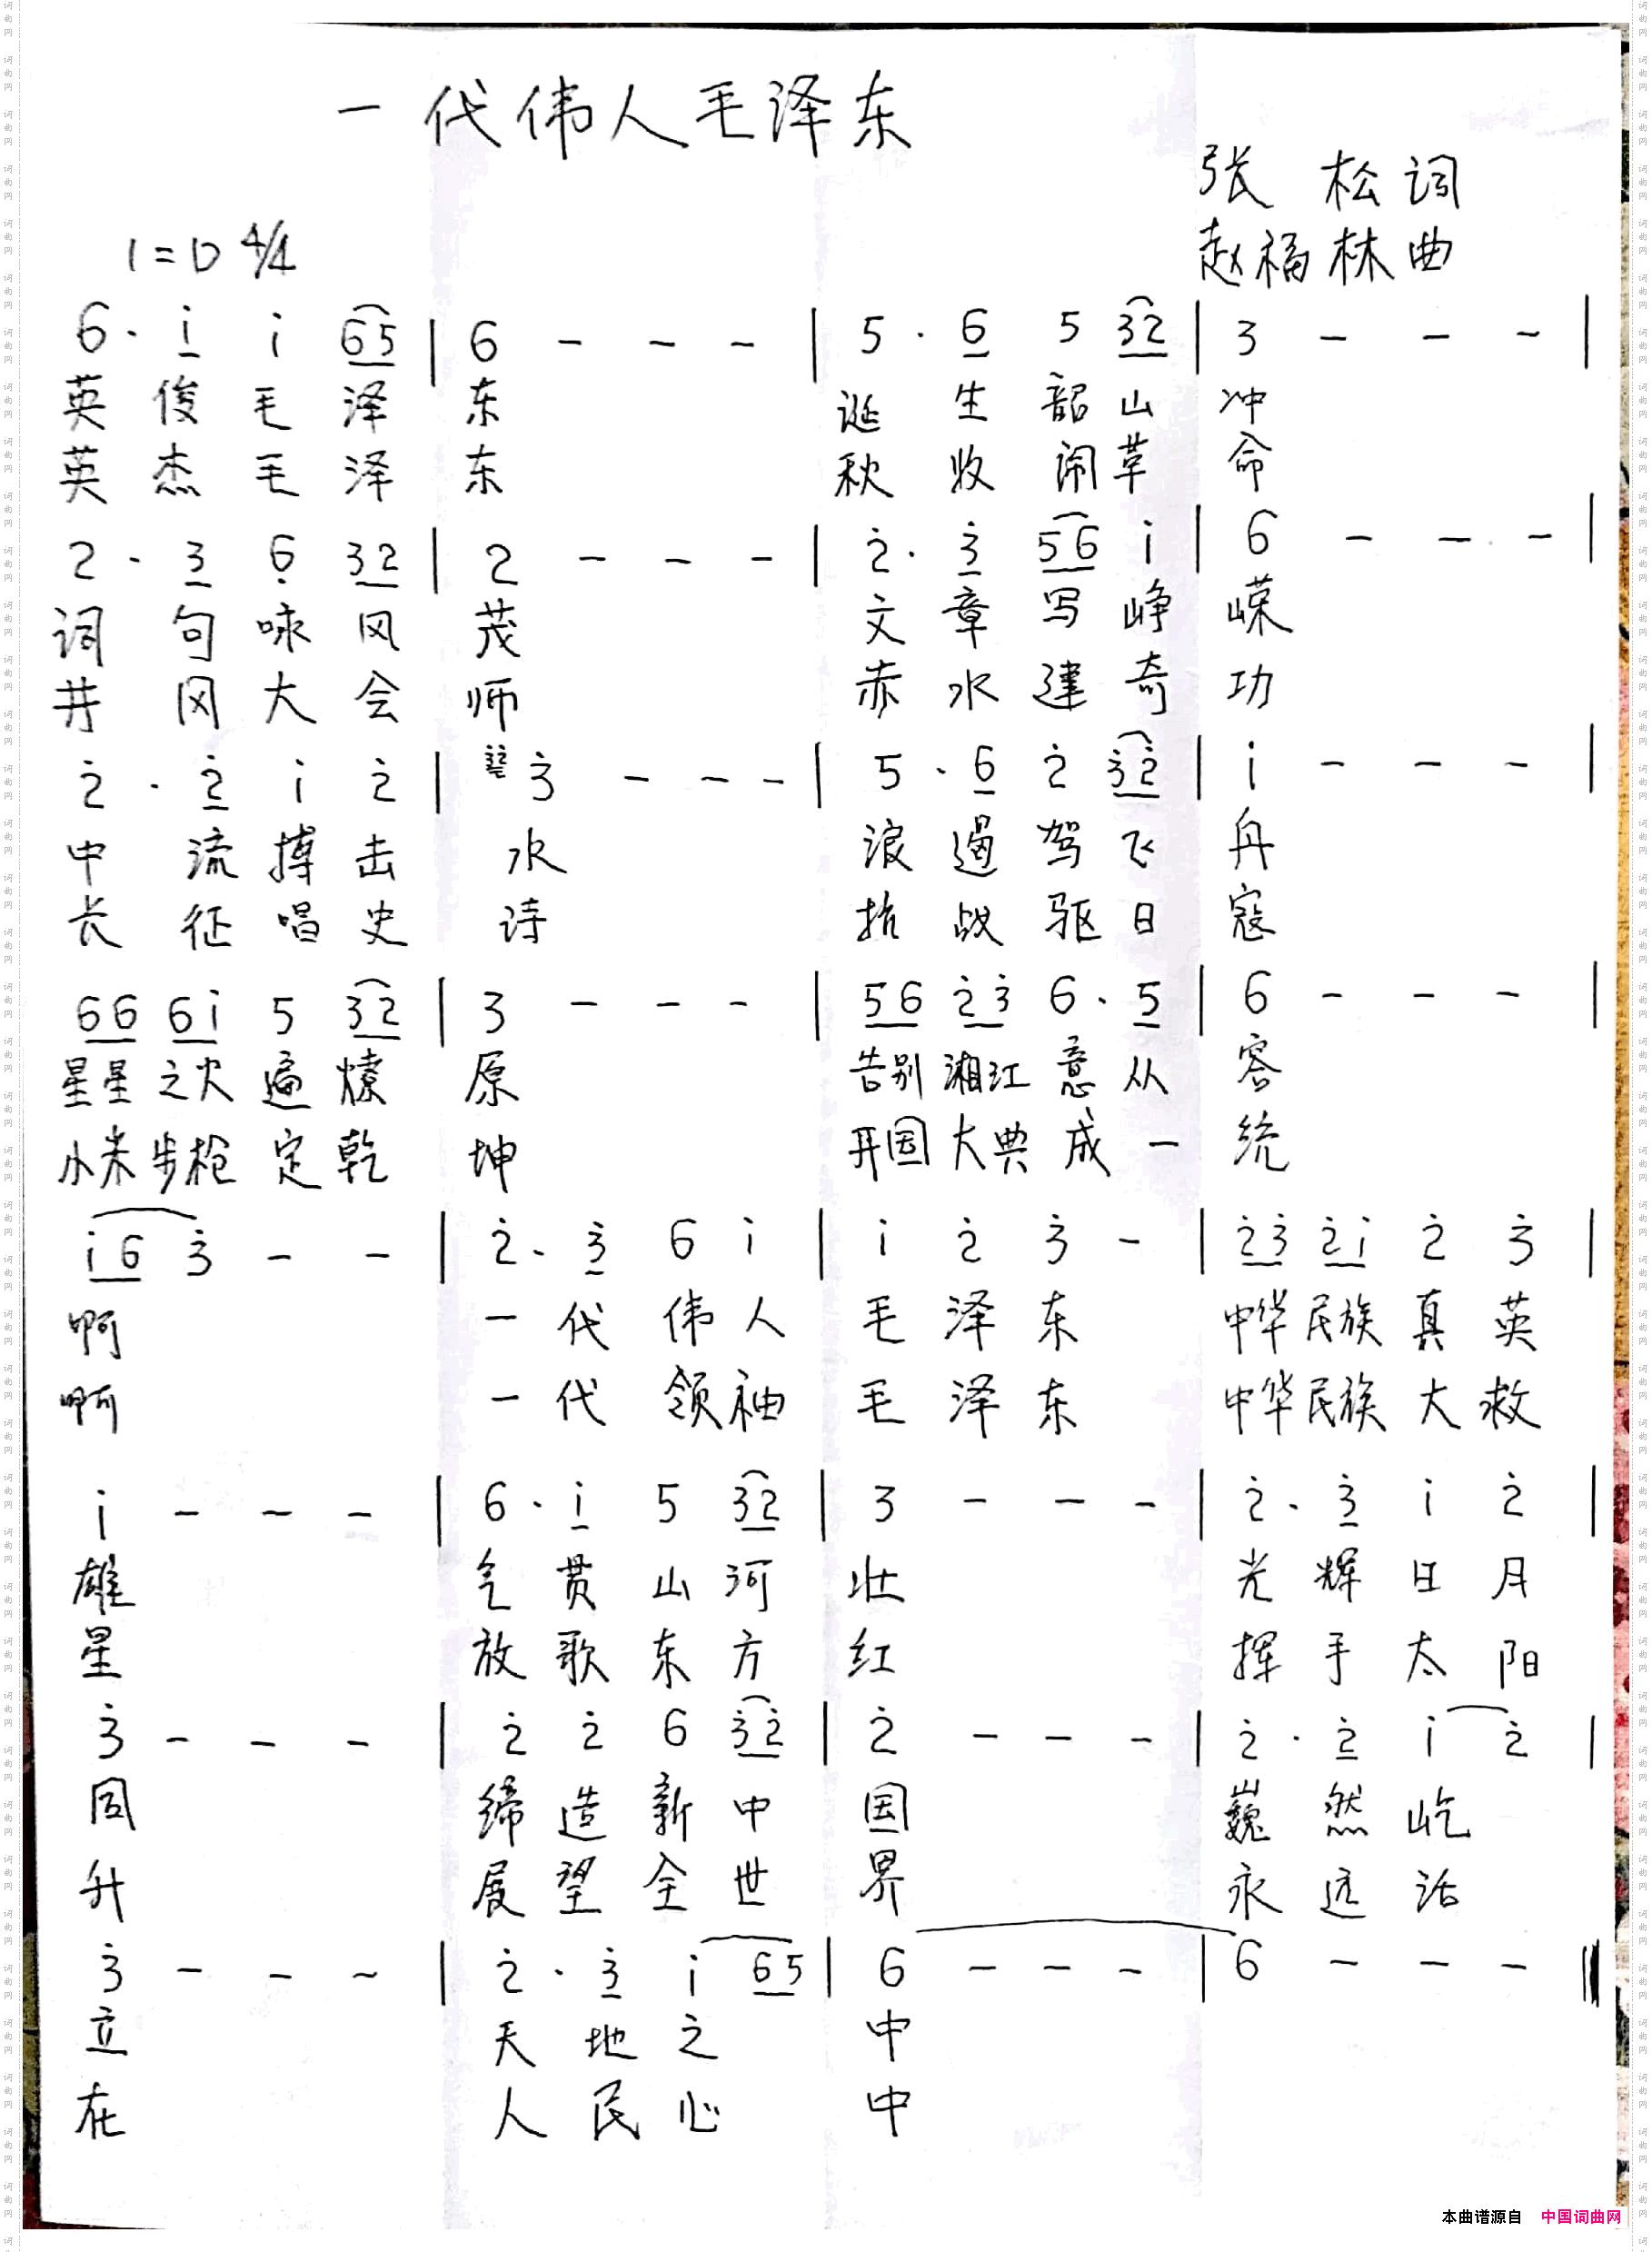 一代伟人毛泽东
张 松 词
1=D 4/4
赵福林曲
6· i̇ i̇ 65 | 6 - - - | 5· 6 5 32 | 3 - - - |
英 俊 毛 泽 东 诞 生 韶 山 冲
英 杰 毛 泽 东 秋 收 闹 革 命
2· 3 6̣ 32 | 2 - - - | 2̇· 3̇ 56 i̇ | 6 - - - |
词 句 咏 风 茂 文 章 写 峥 嵘
井 冈 大 会 师 赤 水 建 奇 功
2̇· 2̇ i̇ 2̇ | 3̇ - - - | 5· 6 2̇ 3̇2̇ | i̇ - - - |
中 流 搏 击 水 浪 遏 驾 飞 舟
长 征 唱 史 诗 抗 战 驱 日 寇
66 6i̇ 5 32 | 3 - - - | 56 2̇3̇ 6· 5 | 6 - - - |
星星 之火 遍 燎 原 告别 湘江 意 从 容
小米 步枪 定 乾 坤 开国 大典 成 一 统
i̇6 3̇ - - | 2̇· 3̇ 6 i̇ | i̇ 2̇ 3̇ - | 2̇3̇ 2̇i̇ 2̇ 3̇ |
啊 一 代 伟 人 毛 泽 东 中华 民族 真 英
啊 一 代 领 袖 毛 泽 东 中华 民族 大 救
i̇ - - - | 6· i̇ 5 32 | 3 - - - | 2̇· 3̇ i̇ 2̇ |
雄 气 贯 山 河 壮 光 辉 日 月
星 放 歌 东 方 红 挥 手 太 阳
3̇ - - - | 2̇ 2̇ 6 3̇2̇ | 2̇ - - - | 2̇· 2̇ i̇ 2̇ |
同 缔 造 新 中 国 巍 然 屹
升 展 望 全 世 界 永 远 活
3̇ - - - | 2̇· 3̇ i̇ 65 | 6 - - - | 6 - - - ‖
立 天 地 之 中
在 人 民 心 中
本曲谱源自 中国词曲网